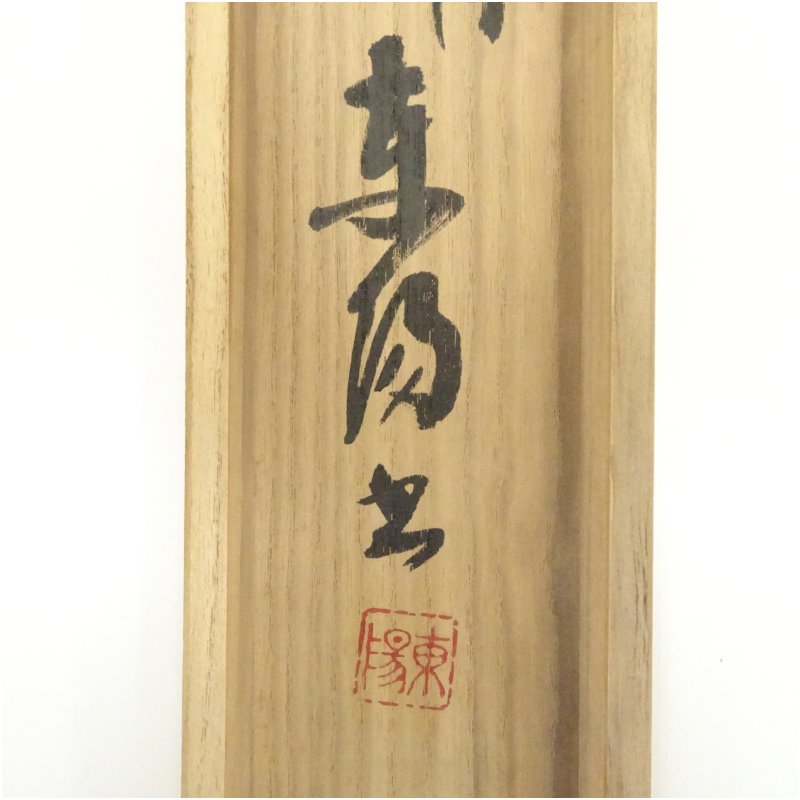 東陽書
東陽